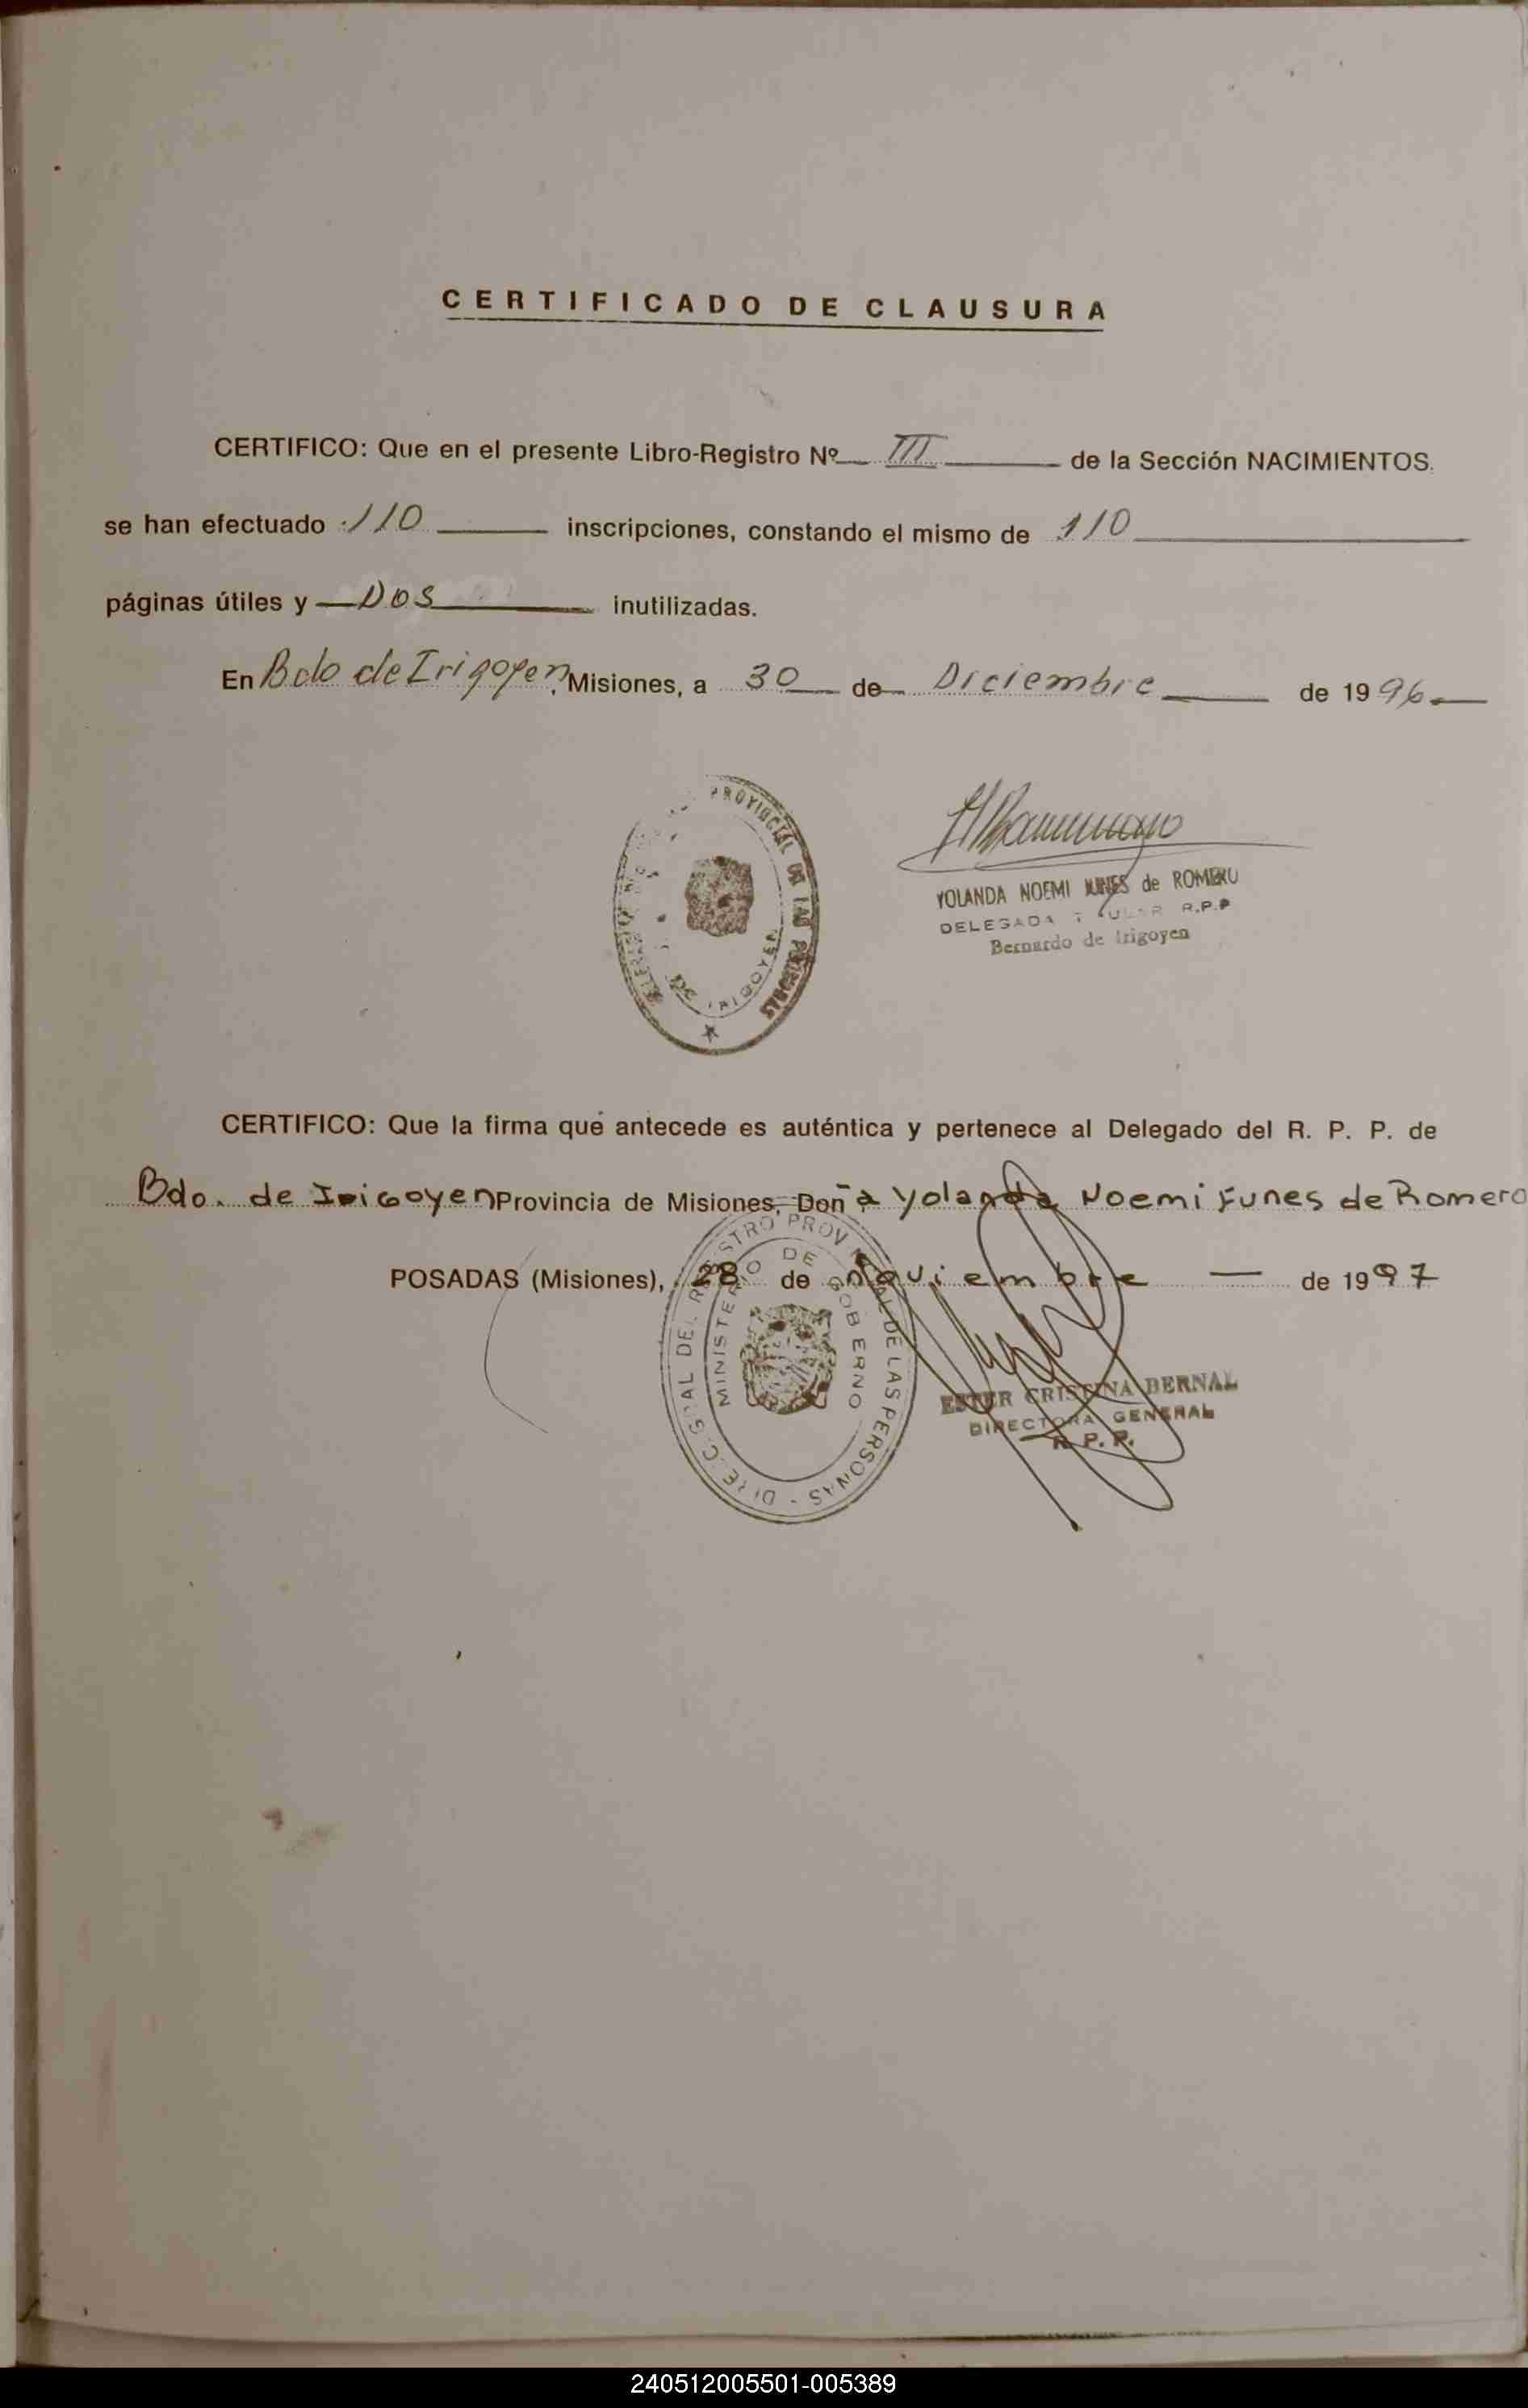 CERTIFICADO DE CLAUSURA
CERTIFICO: Que en el presente Libro-Registro Nº III de la Sección NACIMIENTOS.
se han efectuado 110 inscripciones, constando el mismo de 110
páginas útiles y Dos inutilizadas.
En Bdo de Irigoyen, Misiones, a 30 de Diciembre de 1996
PROVINCIAL DE LAS PERSONAS
DE IRIGOYEN
YOLANDA NOEMI FUNES de ROMERO
DELEGADA TITULAR R.P.P
Bernardo de Irigoyen
CERTIFICO: Que la firma que antecede es auténtica y pertenece al Delegado del R. P. P. de
Bdo. de Irigoyen Provincia de Misiones, Doña Yolanda Noemi Funes de Romero
POSADAS (Misiones), 28 de noviembre — de 1997
DIREC. GRAL DEL REGISTRO PROVINCIAL DE LAS PERSONAS -
MINISTERIO DE GOBERNO
ESTER CRISTINA BERNAL
DIRECTORA GENERAL
R. P. P.
240512005501-005389